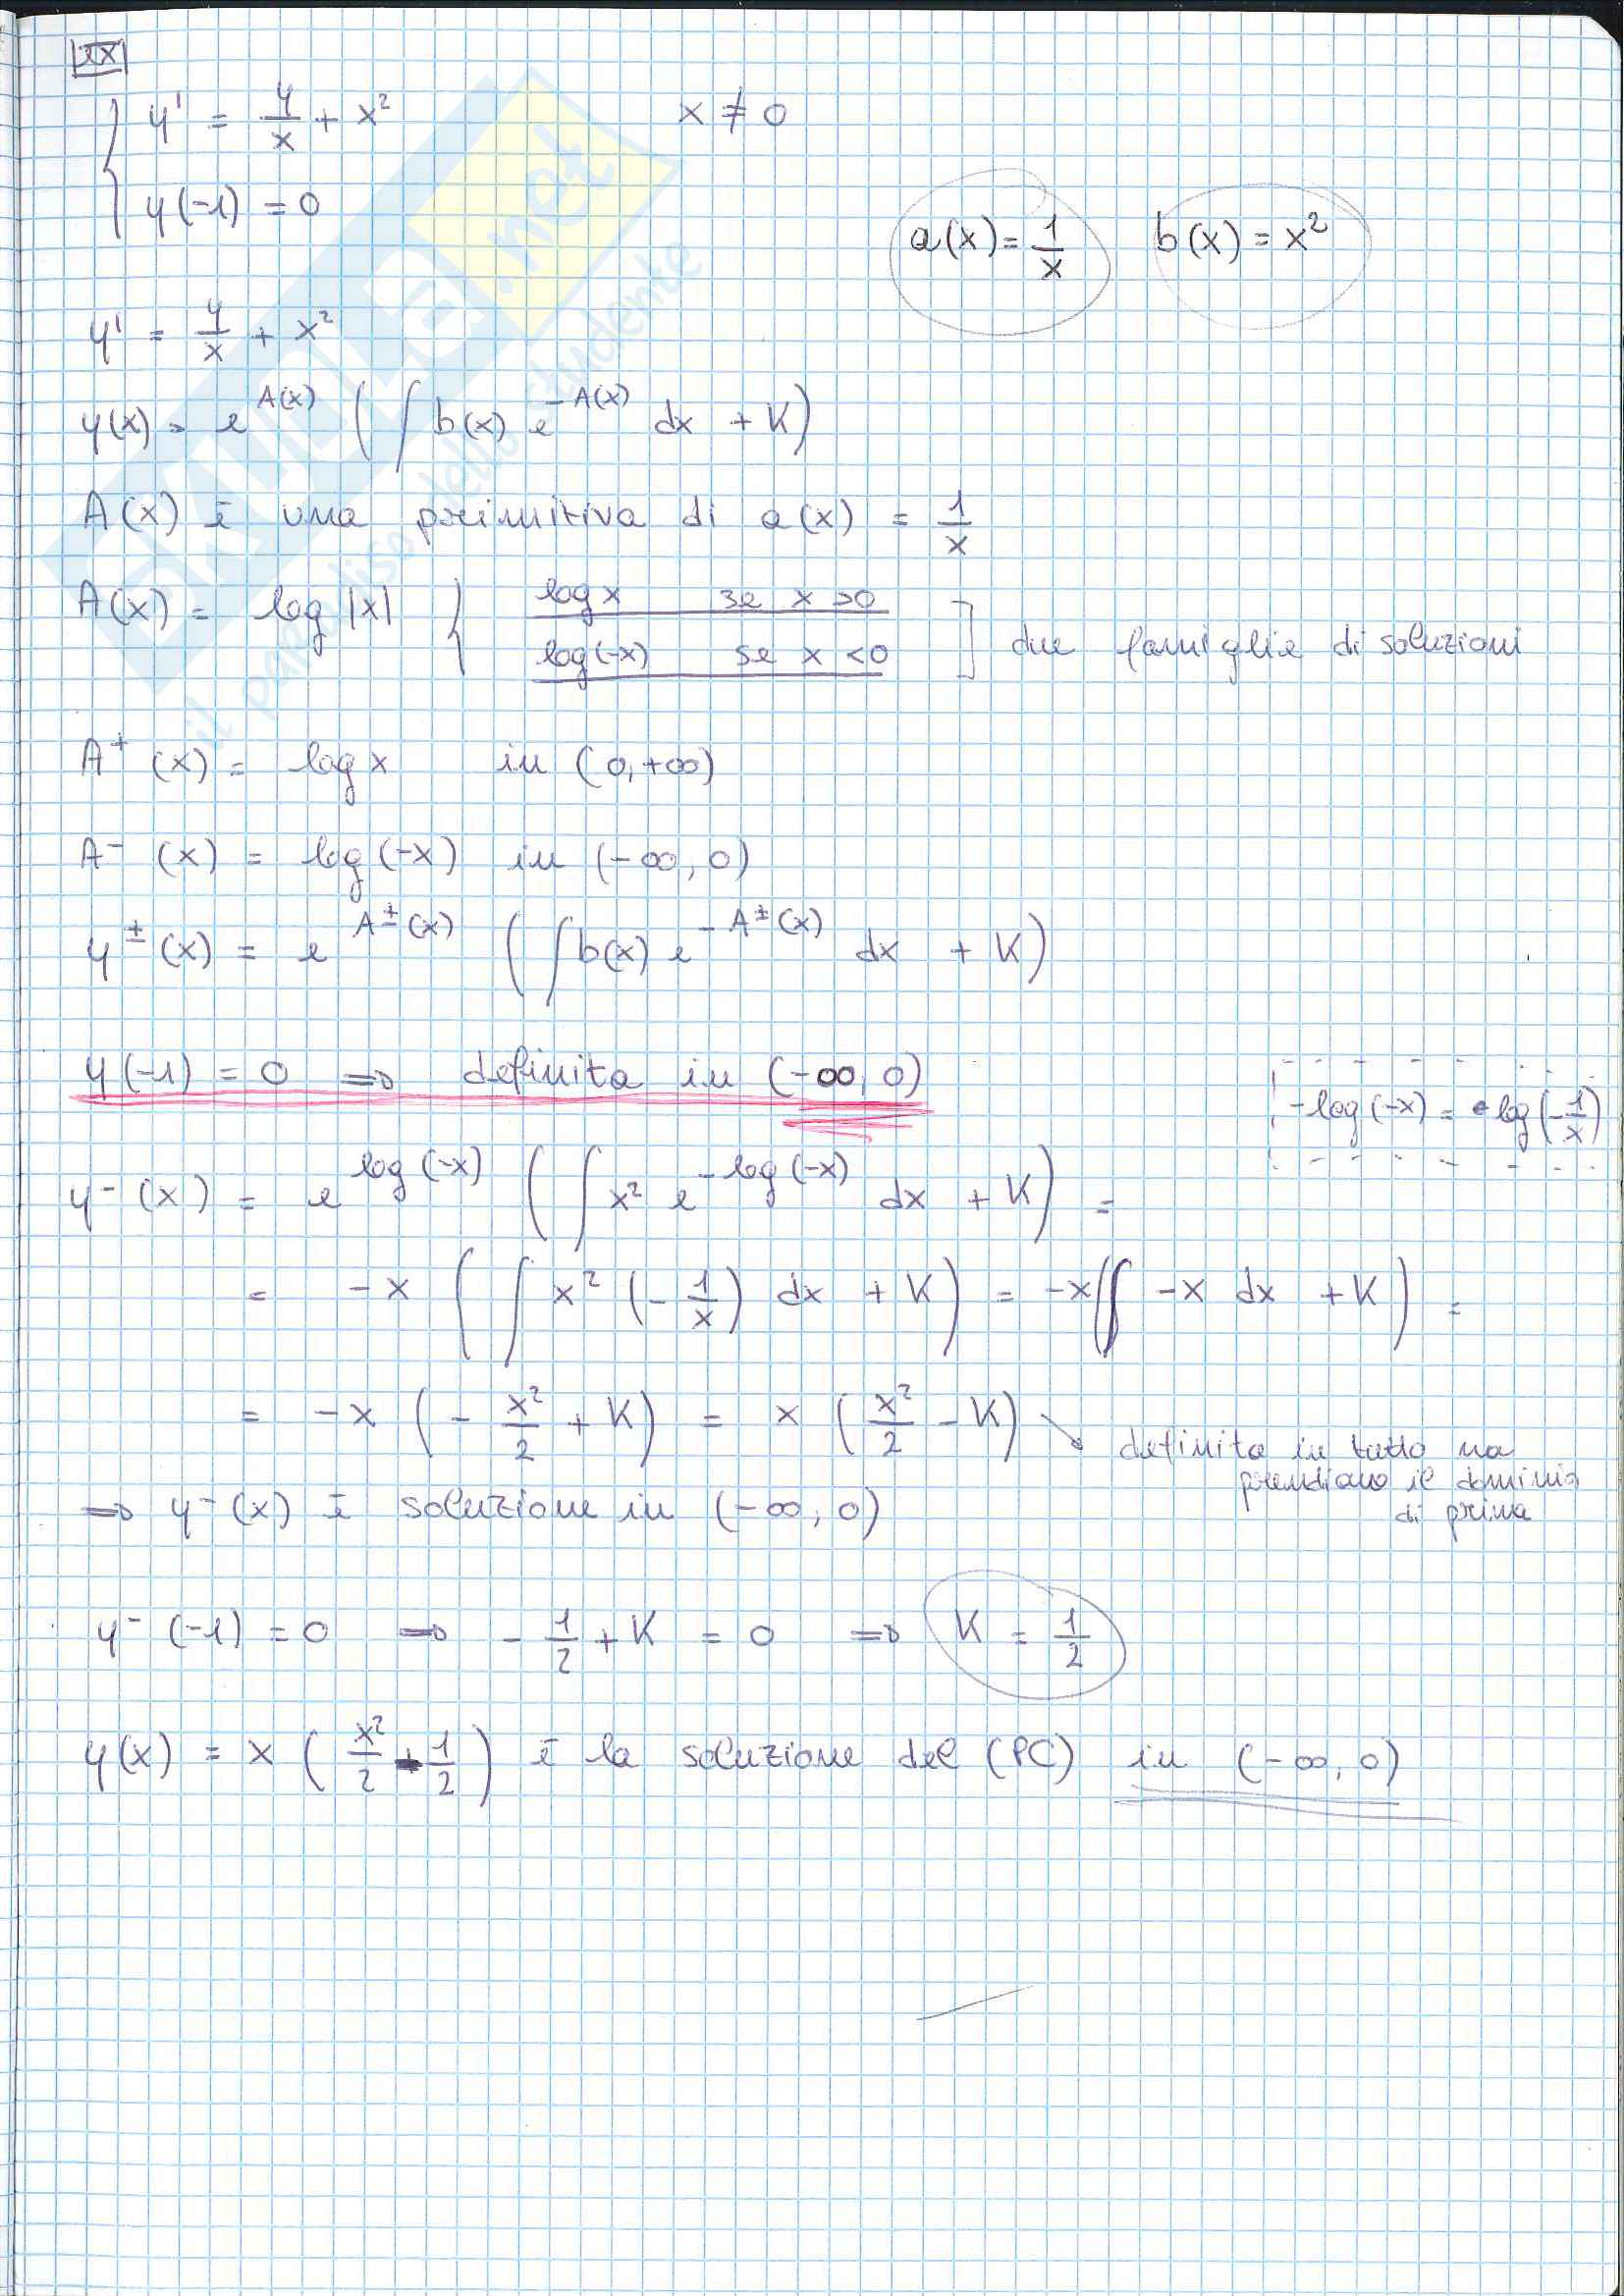 xx
{ y' = y/x + x²    x ≠ 0
y(-1) = 0
a(x) = 1/x    b(x) = x²
y' = y/x + x²
y(x) = e^A(x) ( ∫ b(x) e^-A(x) dx + K )
A(x) è una primitiva di a(x) = 1/x
A(x) = log |x| { log x se x > 0
log(-x) se x < 0 ] due famiglie di soluzioni
A⁺(x) = log x in (0, +∞)
A⁻(x) = log(-x) in (-∞, 0)
y^±(x) = e^A^±(x) ( ∫ b(x) e^-A^±(x) dx + K )
y(-1) = 0 ⇒ definita in (-∞, 0)
-log(-x) = log(-1/x)
y⁻(x) = e^log(-x) ( ∫ x² e^-log(-x) dx + K ) =
= -x ( ∫ x² (-1/x) dx + K ) = -x ( ∫ -x dx + K ) =
= -x ( -x²/2 + K ) = x ( x²/2 - K ) ↘ definita in tutto ma
prendiamo il dominio
di prima
⇒ y⁻(x) è soluzione in (-∞, 0)
y⁻(-1) = 0 ⇒ -1/2 + K = 0 ⇒ K = 1/2
y(x) = x ( x²/2 - 1/2 ) è la soluzione del (PC) in (-∞, 0)
SKUOLA.net
il paradiso dello studente